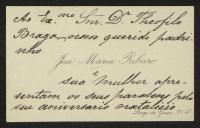 Ao Ex.mo Snr. Dr. Theophilo
Braga, nosso querido padri
nho
José Maria Ribeiro
e sua mulher apre
sentam os seus parabens pelo
seu anniversario natalicio
Largo da Graça,